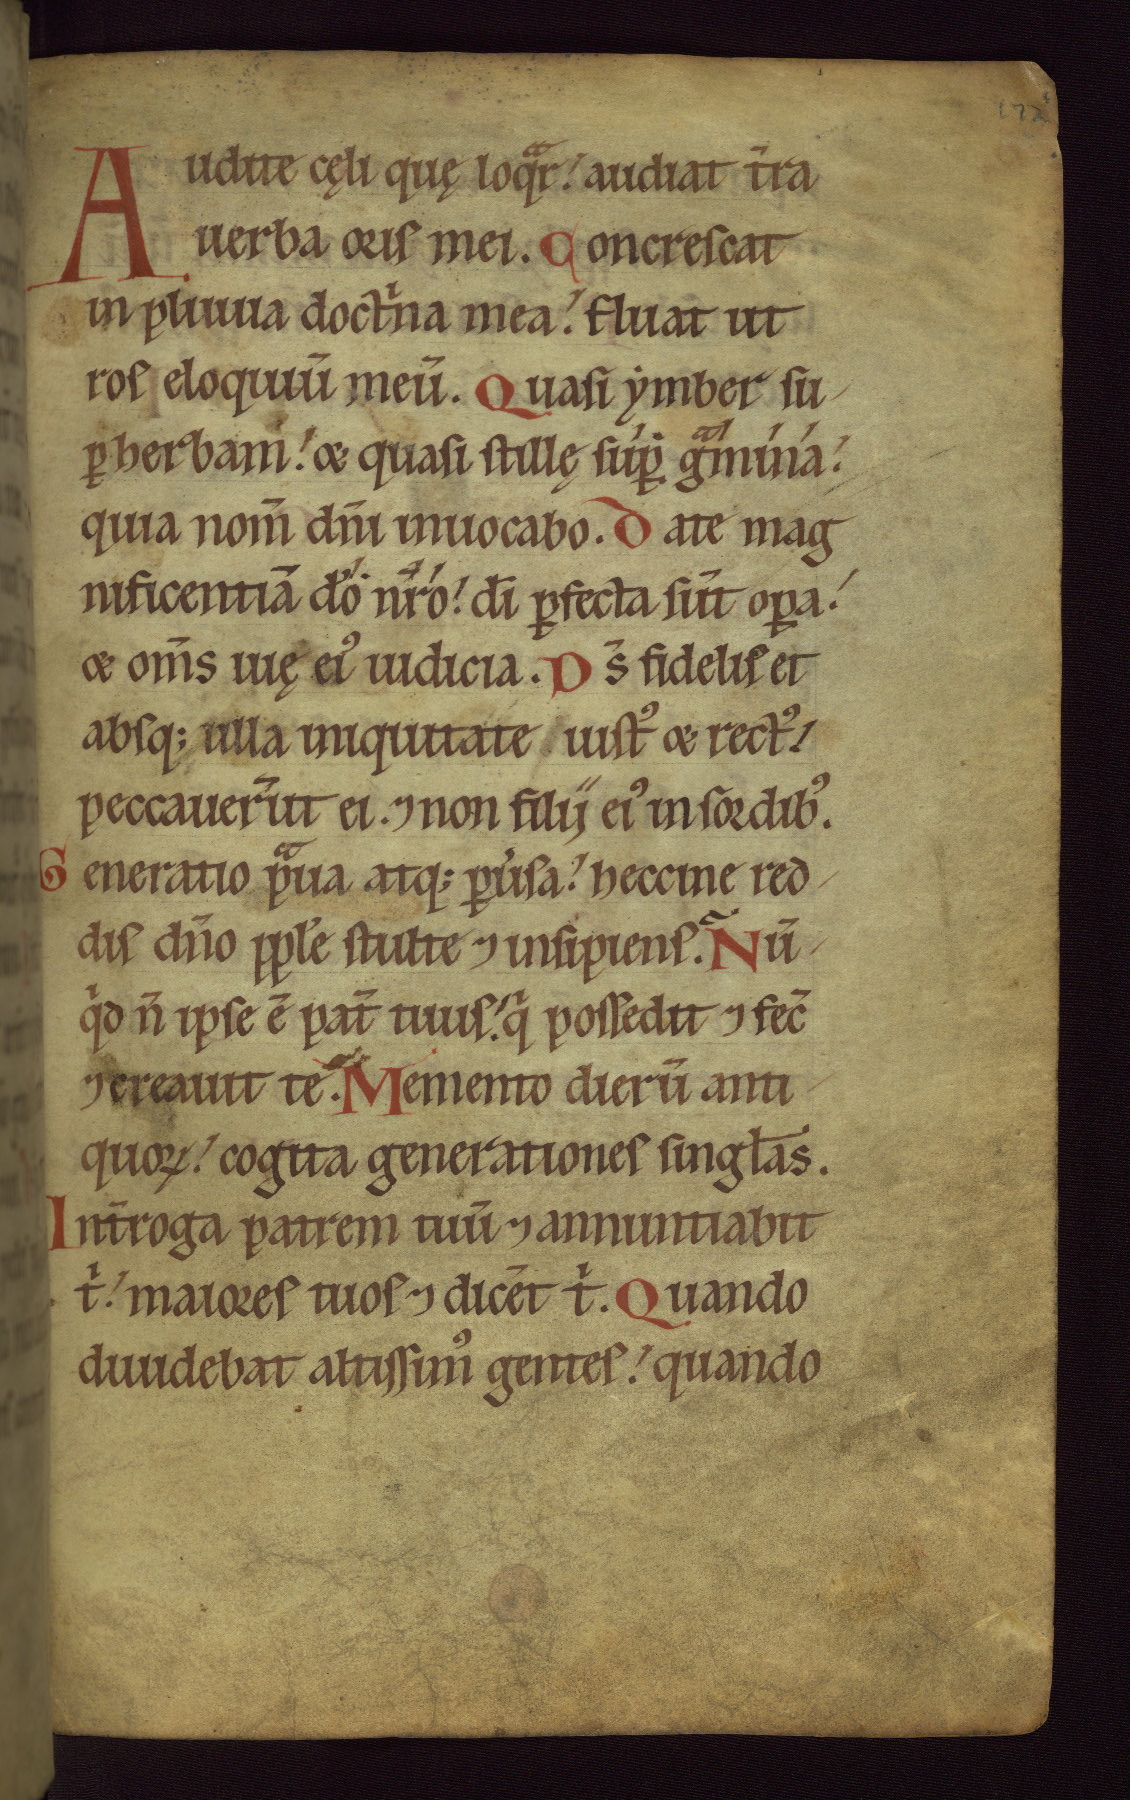 172
Audite cęli quę loqͣr! audiat t̄ra
uerba oris mei. Concrescat
in pluuia doct͛na mea! fluat ut
ros eloquiū meū. Quasi ẏmber su
ꝑ herbam! & quasi stillę suꝑ gͣmina!
quia nom̄ dn̄i inuocabo. Date mag
nificentiā dō nr̄o! dī ꝑfecta sūt oꝑa!
& om̄s uię eiꝰ iudicia. Ds̄ fidelis et
absq; ulla iniquitate iustꝰ & rectꝰ!
peccauer̄ut ei. ⁊ non filij eiꝰ in sordibꝰ.
Generatio pͣua atq; ꝑu͛sa! heccine red
dis dn̄o pp̄le stulte ⁊ insipiens. Nū
qͥd n̄ ipse ē pat̄ tuus! qͥ possedit ⁊ fec̄
⁊ creauit te. Memento dierū anti
quoꝝ! cogita generationes singl̄as.
Int̄roga patrem tuū ⁊ annuntiabit
tͥ! maiores tuos ⁊ dicēt tͥ. Quando
diuidebat altissimꝰ gentes! quando